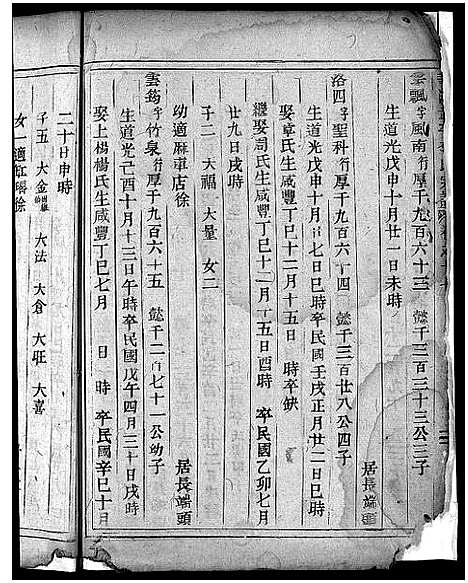 雲飄字風南行厚千九百六十三 懿千三百三十三公三子
生道光戊申十月廿一日未時
居長端頭
洛四字聖科行厚千九百六十四 懿千三百廿八公四子
生道光戊申十月 七日巳時卒民國壬戌正月廿二日巳時
娶章氏生咸豐丁巳十二月十五日 時卒缺
繼娶周氏生咸豐丁巳十二月十五日酉時 卒民國乙卯七月
廿九日戌時
子二 大福 大量 女二
幼適麻車店徐
居長端頭
雲筠字竹泉行厚千九百六十五 懿千二百七十一公幼子
生道光 亥四月十三日午時卒民國戊午四月二十日戌時
娶上楊楊氏生咸豐丁巳七月 日 時 卒民國辛巳十月
二十日申時
子五 大金 大法 大倉 大旺 大喜
女一適 徐